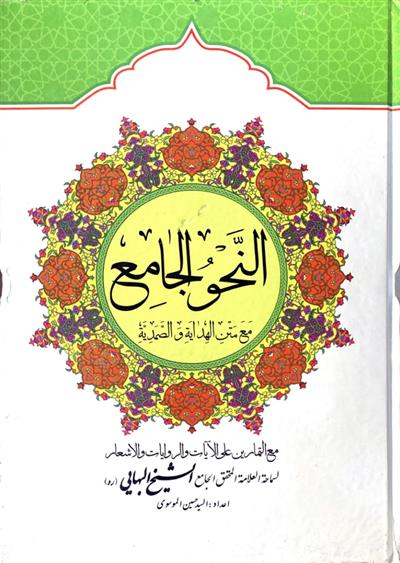 النَّحوُ الجامِع
مَعَ مَتنِ الهِدايَةِ وَالصَّمَدِيَّة
مع التمارين على الآيات والروايات والاشعار
لسماحة العلامة المحقق الجامع الشيخ البهايي (ره)
اعداد: السيد حسين الموسوى